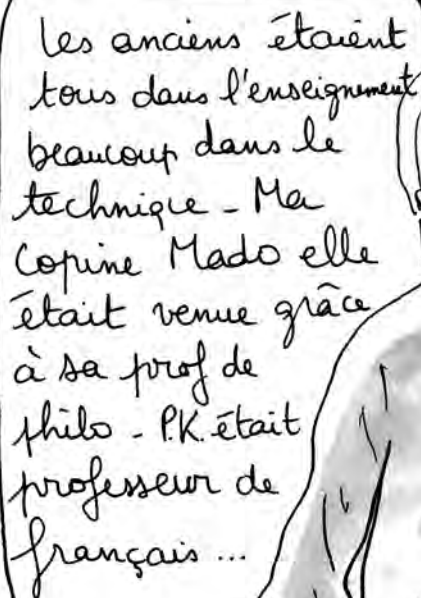 Les anciens étaient
tous dans l'enseignement
beaucoup dans le
technique - Ma
copine Mado elle
était venue grâce
à sa prof de
philo - P.K. était
professeur de
français ...